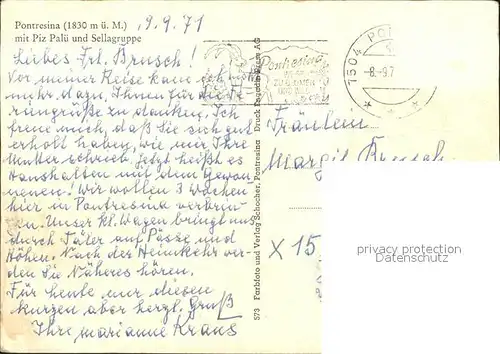 Pontresina (1830 m ü. M.)
mit Piz Palü und Sellagruppe
9.9.71
Liebes Frl. Brusch!
Vor meiner Reise kam ich nicht
mehr dazu, Ihnen für die Fe-
riengrüße zu danken. Ich
freue mich, daß Sie sich gut
erholt haben, wie mir Ihre
Mutter schrieb. Jetzt heißt es
Haushalten mit dem Gewon-
nenen! Wir wollen 3 Wochen
hier in Pontresina verbrin-
gen. Unser kl. Wagen bringt uns
durch Täler auf Pässe und
Höhen. Nach der Heimkehr wer-
den Sie Näheres hören.
Für heute nur diesen
kurzen aber herzl. Gruß
Ihre Marianne Kraus
573 Farbfoto und Verlag Schocher, Pontresina Druck Engadin Press AG
Pontresina
1504
-8.-9.7
Fräulein
Margit Brusch
X 15
privacy protection
Datenschutz